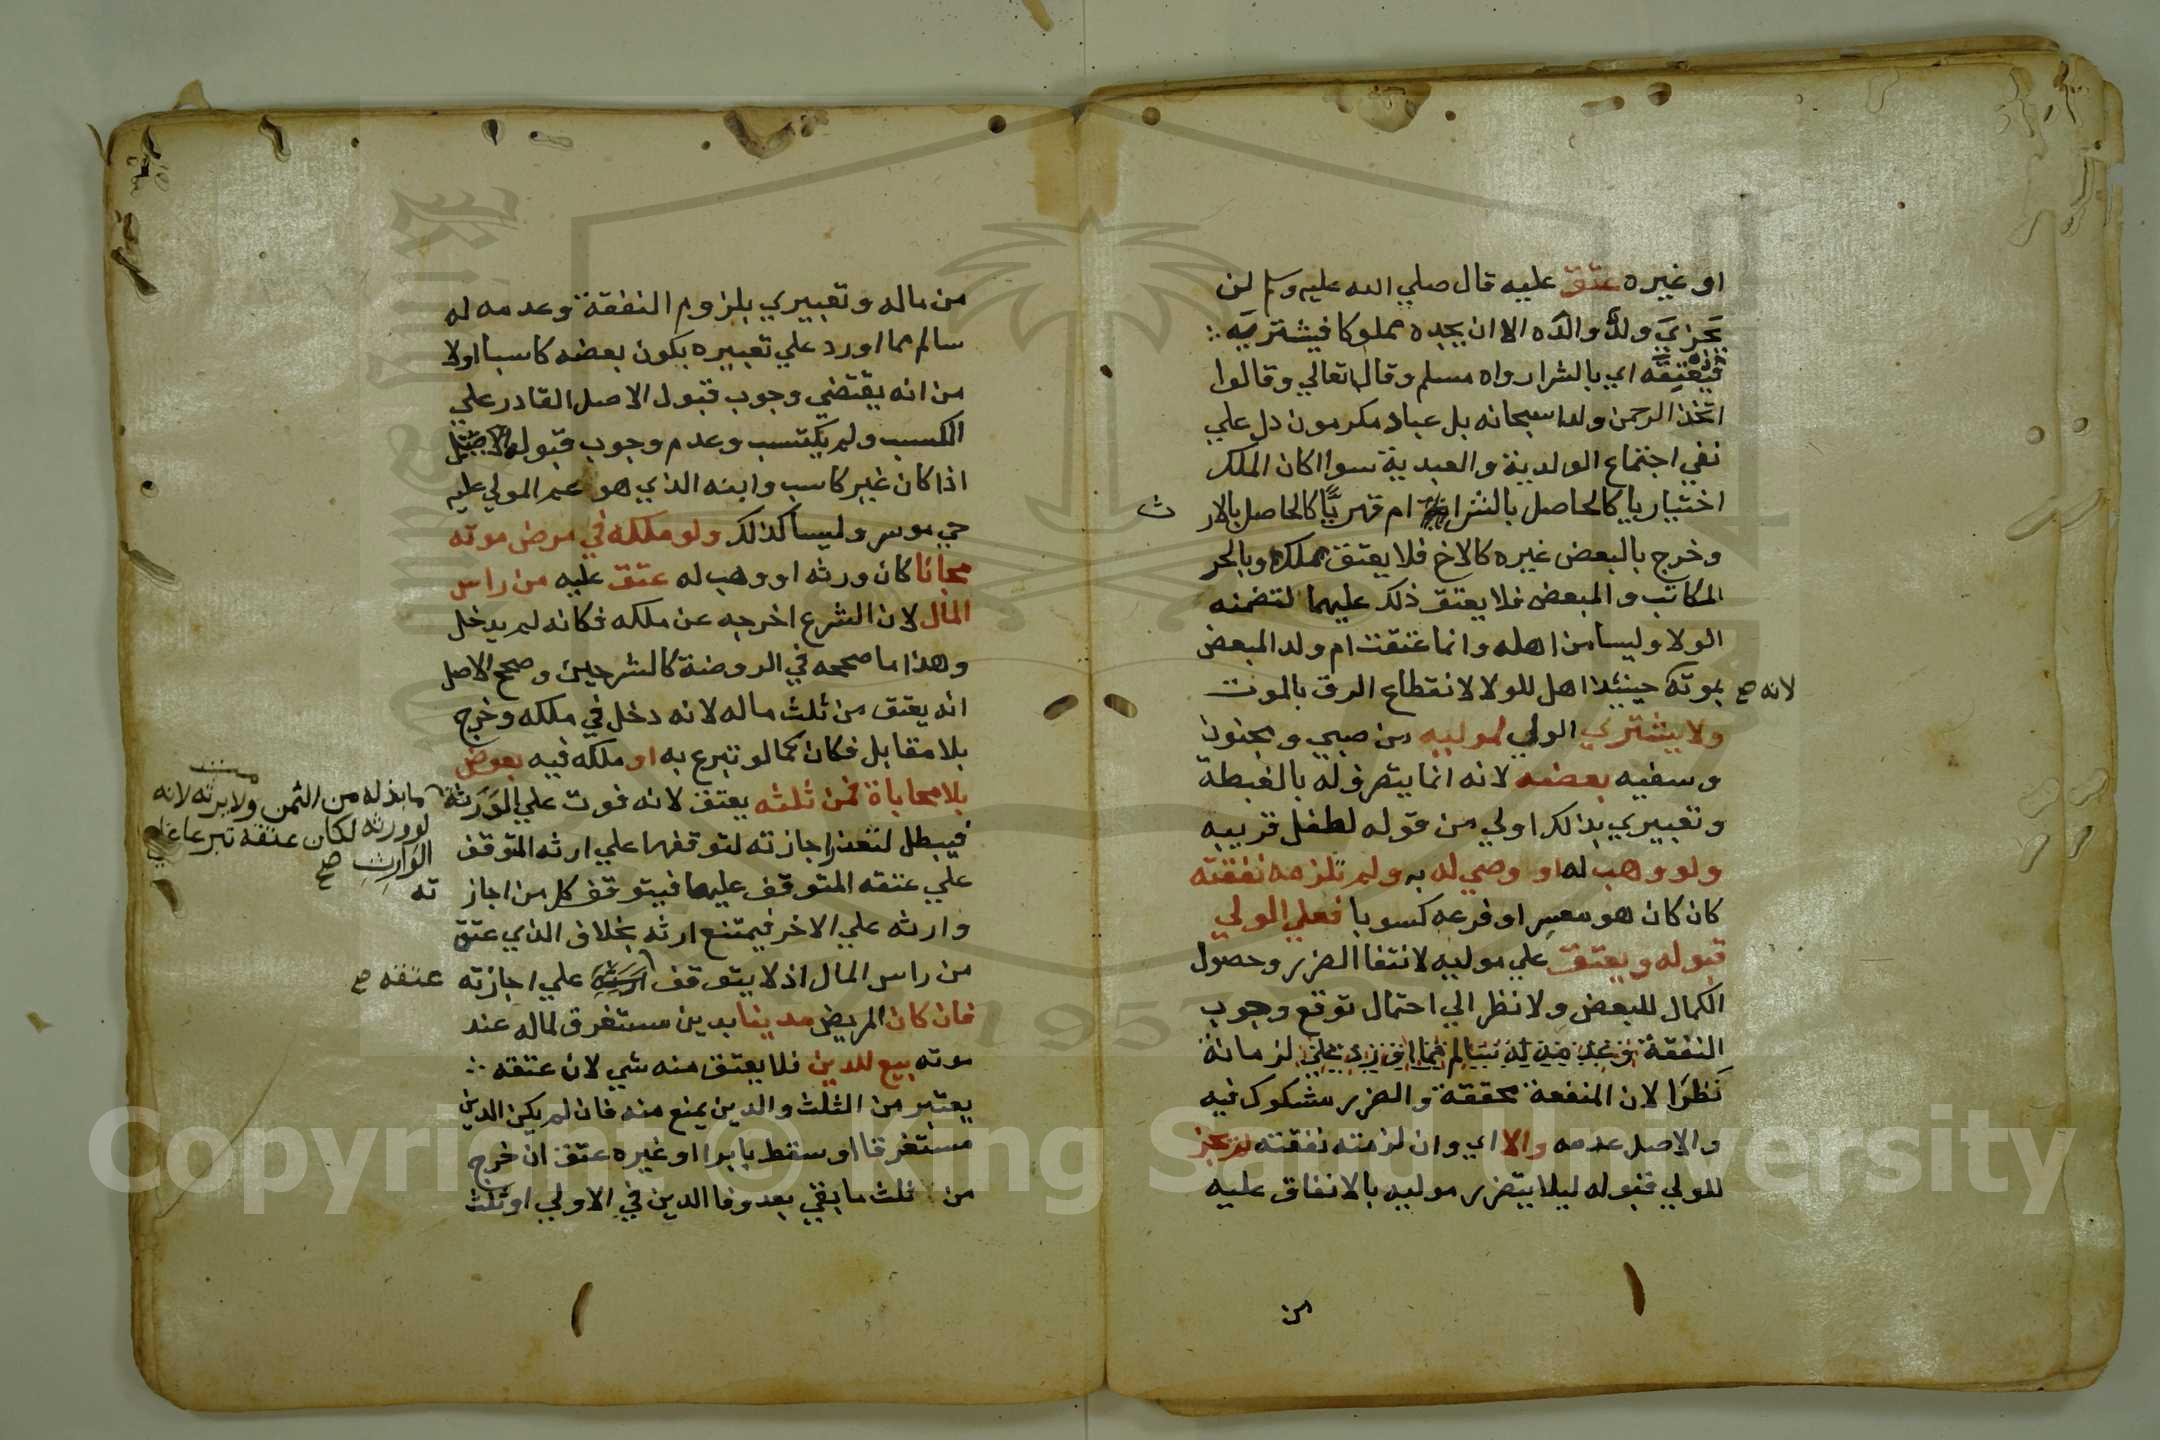 او غيره عتق عليه قال صلي الله عليه وسلم لن
يجزي ولد والده الا ان يجده مملوكا فيشتريه
فيعتقه اي بالشرا رواه مسلم وقال تعالي وقالوا
اتخذ الرحمن ولدا سبحانه بل عباد مكرمون دل علي
نفي اجتماع الولدية والعبدية سوا اكان الملك
اختياريا كالحاصل بالشرا ام قهريًّا كالحاصل بالار
ث
وخرج بالبعض غيره كالاخ فلا يعتق بملكه وبالحر
المكاتب والمبعض فلا يعتق ذلك عليهما لتضمنه
الولا وليسا من اهله وانما عتقت ام ولد المبعض
بموته حينئذ اهل للولا لانقطاع الرق بالموت
لانه صح
ولا يشتري الولي لموليه من صبي ومجنون
وسفيه بعضه لانه انما يتصرف له بالغبطة
وتعبيري بذلك اولي من قوله لطفل قريبه
ولو وهب له او وصي له به ولم تلزمه نفقته
كان كان هو معسر او فرعه كسوبا فعلي الولي
قبوله ويعتق علي موليه لانتفا الضرر وحصول
الكمال للبعض ولا نظر الي احتمال توقع وجوب
النفقة لزمانة
نَظَرَا لان المنفعة محققة والضرر مشكوك فيه
والاصل عدمه والا اي وان لزمته نفقته لم يجز
للولي قبوله ليلا يتضرر موليه بالانفاق عليه
من
من ماله وتعبيري بلزوم النفقة وعدمه له
سالم مما اورد علي تعبيره بكون بعضه كاسبا اولا
من انه يقتضي وجوب قبول الاصل القادر علي
الكسب ولم يكتسب وعدم وجوب قبوله الاصل
اذا كان غير كاسب وابنه الذي هو عم المولي عليه
حي موسر وليسا كذلك ولو ملكه في مرض موته
مجانا كان ورثه او وهب له عتق عليه من راس
المال لان الشرع اخرجه عن ملكه فكانه لم يدخل
وهذا ما صححه في الروضة كالشرحين وصحح الاصل
انه يعتق من ثلث ماله لانه دخل في ملكه وخرج
بلا مقابل فكان كما لو تبرع به او ملكه فيه بعوض
بلا محاباة فمن ثلثه يعتق لانه فوت علي الوَرَثة
ما بذله من الثمن ولا يرثه لانه
لو ورثه لكان عتقه تبرعا علي
الوَارِثِ صح
فيبطل لتعذر اجازته لتوقفها علي ارثه المتوقف
علي عتقه المتوقف عليها فيتوقف كل من اجاز
ته
وارثه علي الاخر فيمتنع ارثه بخلاف الذي عتق
من راس المال اذ لا يتوقف علي اجازته
عتقه صح
فان كان المريض مدينا بدين مستغرق لماله عند
موته بيع للدين فلا يعتق منه شي لان عتقه
يعتبر من الثلث والدين يمنع منه فان لم يكن الدين
مستغرقا او سقط بابرا او غيره عتق ان خرج
من ثلث ما بقي بعد وفا الدين في الاولي او ثلث
Copyright © King Saud University
1957